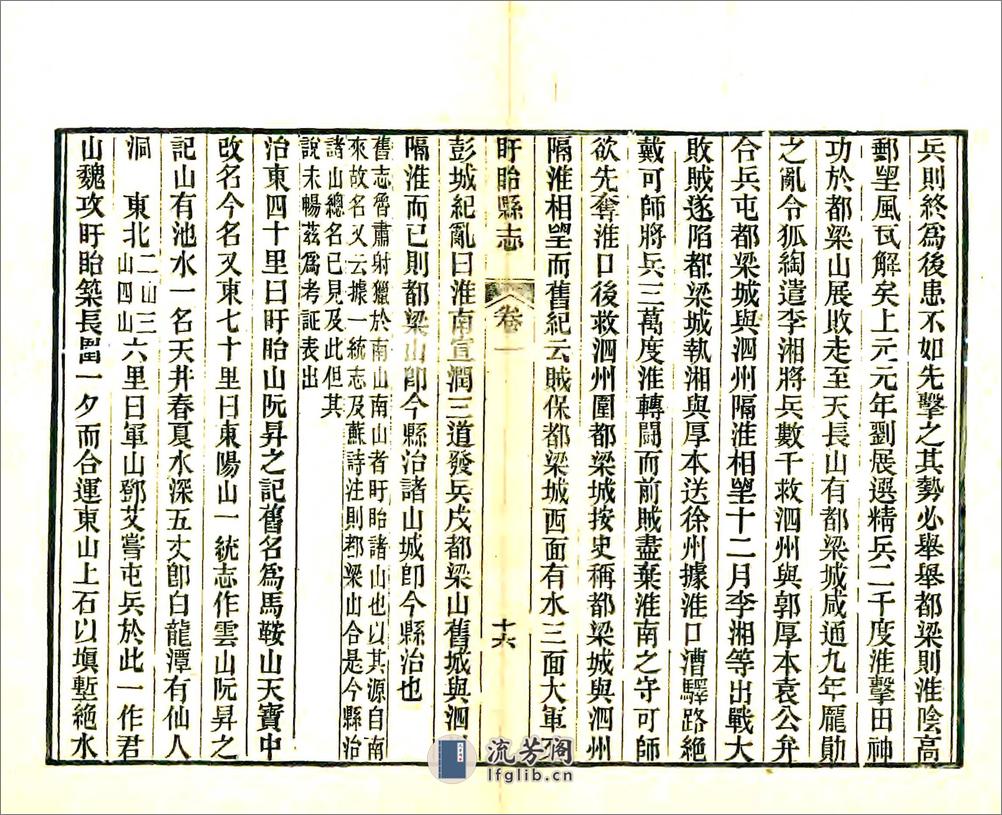 兵則終爲後患不如先擊之其勢必舉舉都梁則淮陰高
郵望風瓦解矣上元元年劉展選精兵二千度淮擊田神
功於都梁山展敗走至天長山有都梁城咸通九年龎勛
之亂令狐綯遣李湘將兵數千救泗州與郭厚本袁公弁
合兵屯都梁城與泗州隔淮相望十二月李湘等出戰大
敗賊遂陷都梁城執湘與厚本送徐州據淮口漕驛路絶
戴可師將兵三萬度淮轉鬪而前賊盡棄淮南之守可師
欲先奪淮口後救泗州圍都梁城按史稱都梁城與泗州
隔淮相望而舊紀云賊保都梁城西面有水三面大軍
盱眙縣志 卷一 十六
彭城紀亂曰淮南宣潤三道發兵戍都梁山舊城與泗
隔淮而已則都梁山卽今縣治諸山城卽今縣治也
舊志魯肅射獵於南山南山者盱眙諸山也以其源自南
來故名又云據一統志及蘇詩注則都梁山合是今縣治
諸山總名已見及此但其
說未暢茲爲考証表出
治東四十里曰盱眙山阮昇之記舊名爲馬鞍山天寶中
改名今名又東七十里曰東陽山一統志作雲山阮昇之
記山有池水一名天井春夏水深五丈卽白龍潭有仙人
洞 東北二山三山四山六里曰軍山鄧艾嘗屯兵於此一作君
山魏攻盱眙築長圍一夕而合運東山上石以塡塹絶水
流芳阁
lfglib.cn